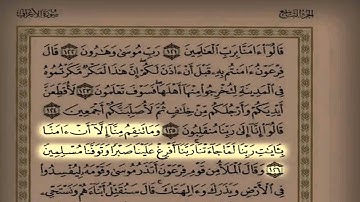 سورة الأعراف الجزء التاسع
قَالُوٓا۟ ءَامَنَّا بِرَبِّ ٱلْعَٰلَمِينَ ١٢١ رَبِّ مُوسَىٰ وَهَٰرُونَ ١٢٢ قَالَ
فِرْعَوْنُ ءَامَنتُم بِهِۦ قَبْلَ أَنْ ءَاذَنَ لَكُمْ إِنَّ هَٰذَا لَمَكْرٌ مَّكَرْتُمُوهُ
فِى ٱلْمَدِينَةِ لِتُخْرِجُوا۟ مِنْهَآ أَهْلَهَا فَسَوْفَ تَعْلَمُونَ ١٢٣ لَأُقَطِّعَنَّ
أَيْدِيَكُمْ وَأَرْجُلَكُم مِّنْ خِلَٰفٍ ثُمَّ لَأُصَلِّبَنَّكُمْ أَجْمَعِينَ ١٢٤
قَالُوٓا۟ إِنَّآ إِلَىٰ رَبِّنَا مُنقَلِبُونَ ١٢٥ وَمَا تَنقِمُ مِنَّآ إِلَّآ أَنْ ءَامَنَّا
بِـَٔايَٰتِ رَبِّنَا لَمَّا جَآءَتْنَا رَبَّنَآ أَفْرِغْ عَلَيْنَا صَبْرًا وَتَوَفَّنَا مُسْلِمِينَ
١٢٦ وَقَالَ ٱلْمَلَأُ مِن قَوْمِ فِرْعَوْنَ أَتَذَرُ مُوسَىٰ وَقَوْمَهُۥ لِيُفْسِدُوا۟
فِى ٱلْأَرْضِ وَيَذَرَكَ وَءَالِهَتَكَ قَالَ سَنُقَتِّلُ أَبْنَآءَهُمْ وَنَسْتَحْىِۦ